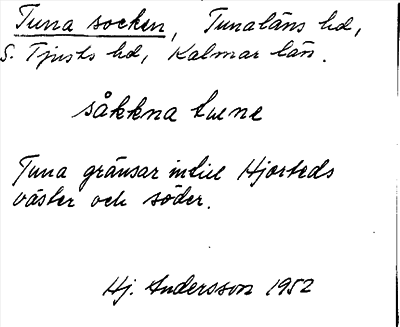 Tuna socken, Tunaläns hd,
S. Tjusts hd, Kalmar län.
såkkna tuene
Tuna gränsar intill Hjorteds
väster och söder.
Hj. Andersson 1952